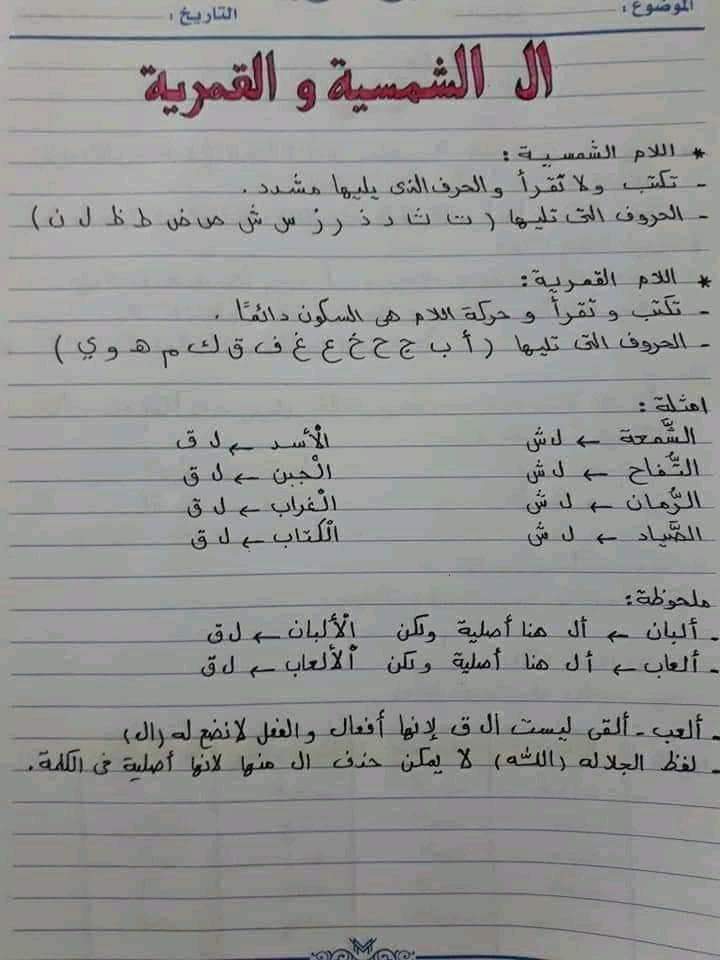 الموضوع :
التاريخ :
ال الشمسية و القمرية
* اللام الشمسية :
- تكتب ولا تقرأ والحرف الذى يليها مشدد .
- الحروف التى تليها ( ت ث د ذ ر ز س ش ص ض ط ظ ل ن )
* اللام القمرية :
- تكتب و تقرأ و حركة اللام هى السكون دائمًا .
- الحروف التى تليها ( أ ب ج ح خ ع غ ف ق ك م ه و ي )
امثلة :
الشَّمعة ← ل ش الْأسد ← ل ق
التُّفاح ← ل ش الْجبن ← ل ق
الرُّمان ← ل ش الْغراب ← ل ق
الصَّياد ← ل ش الْكتاب ← ل ق
ملحوظة :
- ألبان ← أل هنا أصلية ولكن الْألبان ← ل ق
- ألعاب ← أل هنا أصلية ولكن الْألعاب ← ل ق
- ألعب - ألقى ليست ال ق لإنها أفعال والفعل لا نضع له (ال)
- لفظ الجلاله (الله) لا يمكن حذف ال منها لانها أصلية فى الكلمة .